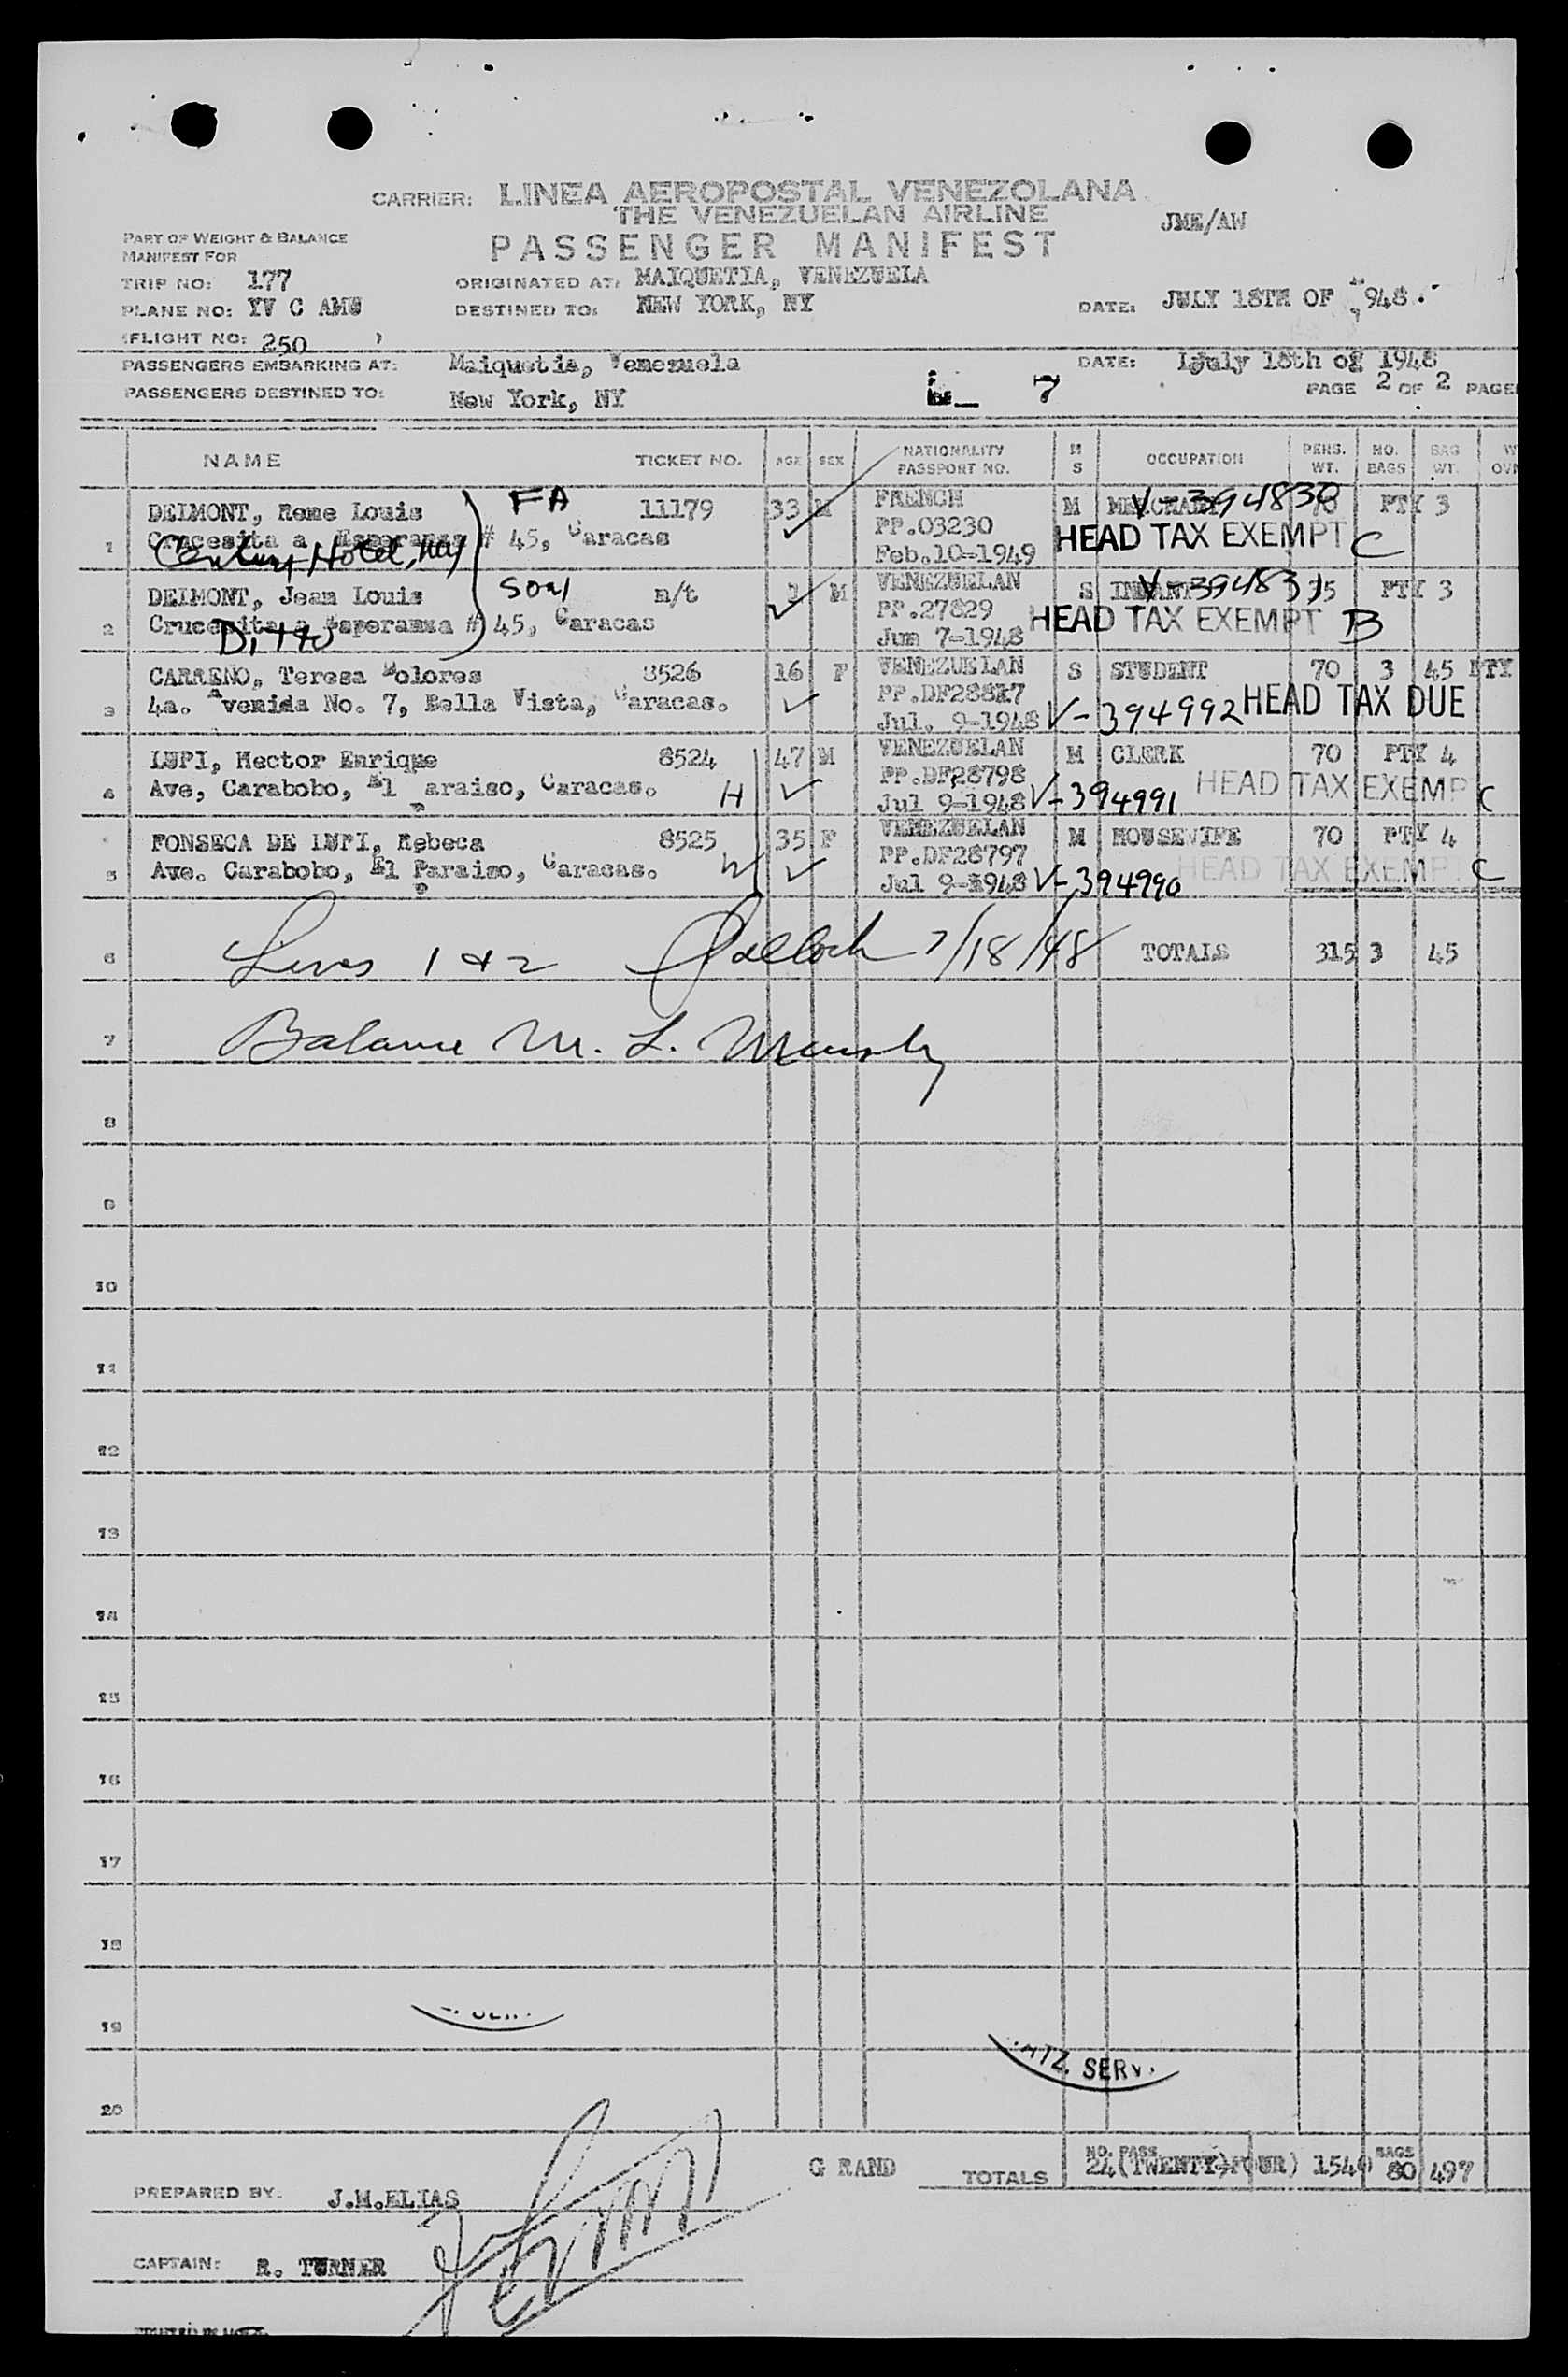 CARRIER: LINEA AEROPOSTAL VENEZOLANA
THE VENEZUELAN AIRLINE
JME/AW
PART OF WEIGHT & BALANCE
MANIFEST FOR
PASSENGER MANIFEST
TRIP NO: 177
ORIGINATED AT: MAIQUETIA, VENEZUELA
PLANE NO: YV C AMU
DESTINED TO: NEW YORK, NY
DATE: JULY 18TH OF 948
(FLIGHT NO: 250 )
PASSENGERS EMBARKING AT: Maiquetia, Venezuela
DATE: July 18th og 1948
PASSENGERS DESTINED TO: New York, NY
7
PAGE 2 OF 2 PAGE
NAME TICKET NO. AGE SEX NATIONALITY PASSPORT NO. M S OCCUPATION PERS. WT. NO. BAGS BAG WT.
1 DELMONT, Rene Louis FA 11179 33 M FRENCH M MERCHANT V-394830 70 PTY 3
Crucesita a Esperanza # 45, Caracas PP.03230 HEAD TAX EXEMPT C
Century Hotel, NY Feb.10-1949
2 DELMONT, Jean Louis Son n/t M VENEZUELAN S INFANT V-394831 35 PTY 3
Crucesita a Esperanza # 45, Caracas PP.27829 HEAD TAX EXEMPT B
Ditto Jun 7-1948
3 CARRENO, Teresa Dolores 8526 16 F VENEZUELAN S STUDENT 70 3 45 PTY
4a. Avenida No. 7, Bella Vista, Caracas. PP.DF28817 HEAD TAX DUE
Jul. 9-1948 V-394992
4 LUPI, Hector Enrique 8524 47 M VENEZUELAN M CLERK 70 PTY 4
Ave, Carabobo, El Paraiso, Caracas. H PP.DF28798 HEAD TAX EXEMP C
Jul 9-1948 V-394991
5 FONSECA DE LUPI, Rebeca 8525 35 F VENEZUELAN M HOUSEWIFE 70 PTY 4
Ave. Carabobo, El Paraiso, Caracas. W PP.DF28797 HEAD TAX EXEMP C
Jul 9-1948 V-394990
6 Lines 1 & 2 7/18/48 TOTALS 315 3 45
7 Balance M. L.
8
9
10
11
12
13
14
15
16
17
18
19
SERV.
20
NO. PASS BAGS
G RAND TOTALS 24(TWENTY-FOUR) 1540 80 497
PREPARED BY: J.M.ELIAS
CAPTAIN: R. TURNER